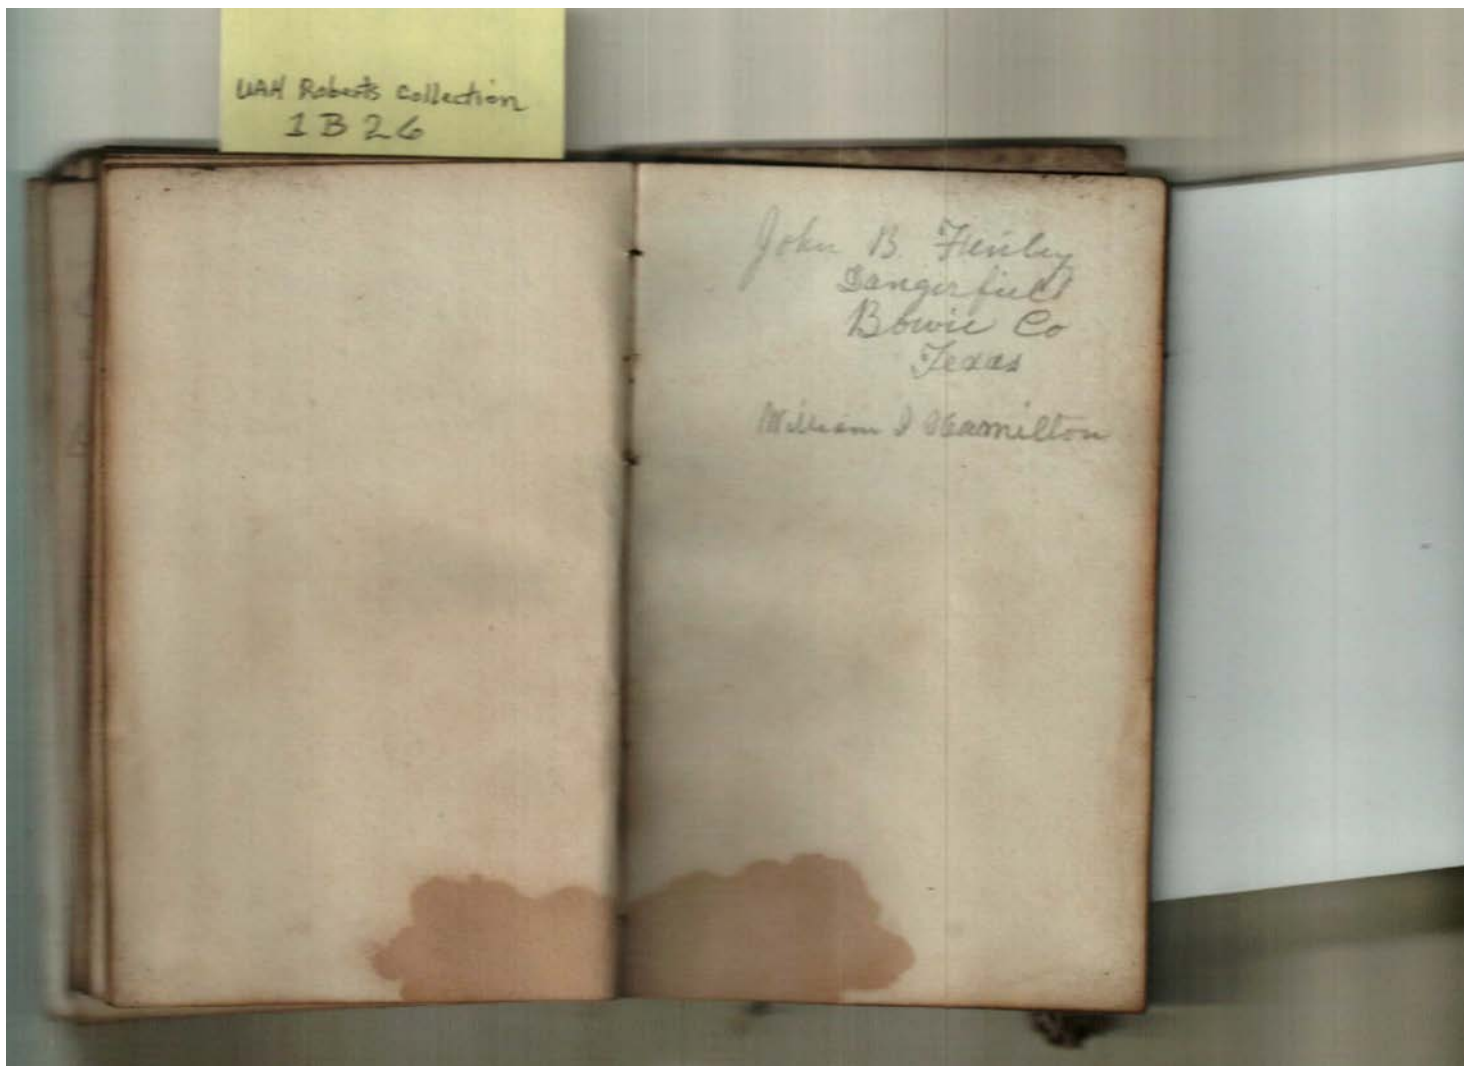 UAH Roberts Collection
1 B 26
John B. Henley
Dangerfield
Bowie Co
Texas
William J Hamilton